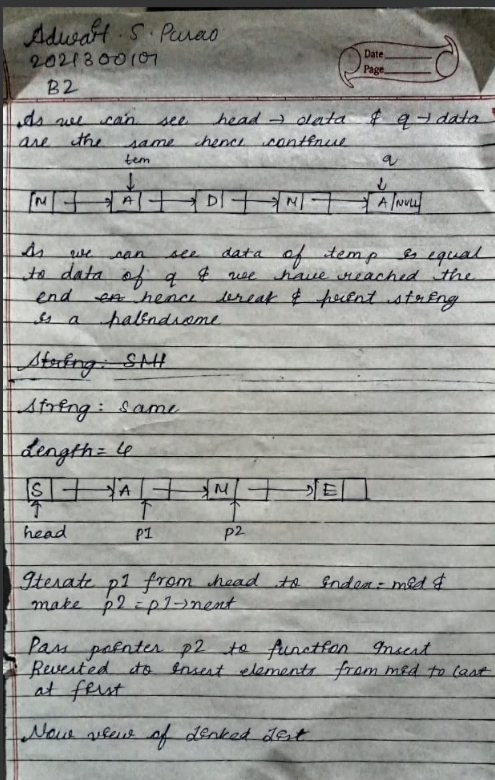 Adwait . S. Purao
2021300101
Date
Page
B2
As we can see head → data & q → data
are the same hence continue
tem q
M A D M A NULL
As we can see data of temp is equal
to data of q & we have reached the
end en hence break & print string
is a palindrome
String: SMH
String: same
Length = 4
S A M E
head p1 p2
Iterate p1 from head to index = mid &
make p2 = p1→next
Pass pointer p2 to function Insert
Reversed to insert elements from mid to last
at first
Now view of Linked List